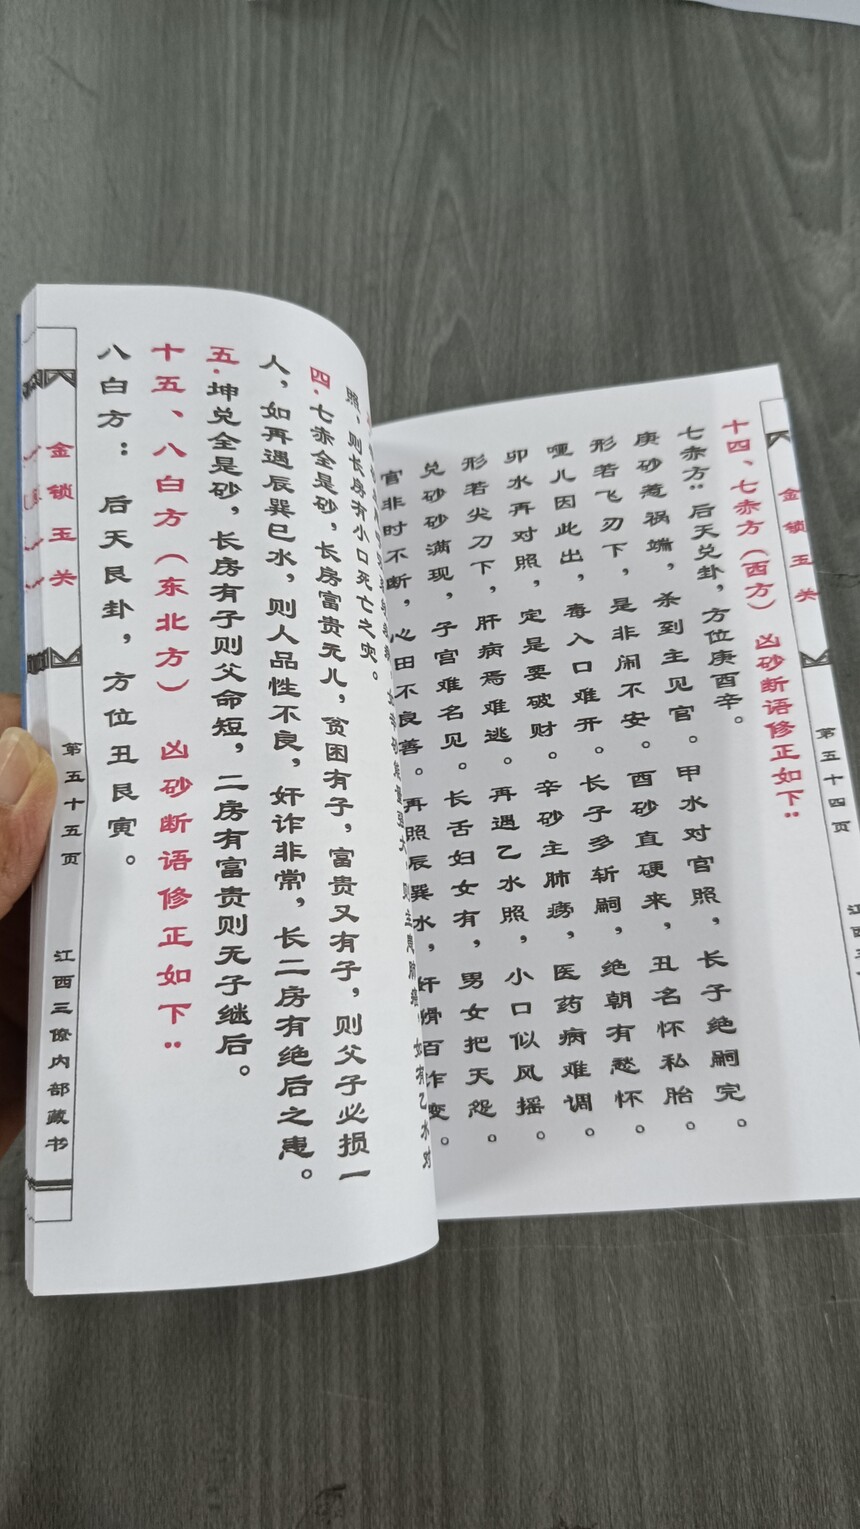 金锁玉关
第五十四页
江西三
十四、七赤方（西方） 凶砂断语修正如下：
七赤方：后天兑卦，方位庚酉辛。
庚砂惹祸端，杀到主见官。甲水对官照，长子绝嗣完。
形若飞刃下，是非闹不安。酉砂直硬来，丑名怀私胎。
哑儿因此出，毒入口难开。长子多斩嗣，绝朝有愁怀。
卯水再对照，定是要破财。辛砂主肺痨，医药病难调。
形若尖刀下，肝病焉难逃。再遇乙水照，小口似风摇。
兑砂砂满现，子宫难名见。长舌妇女有，男女把天怨。
官非时不断，心田不良善。再照辰巽水，奸猾百诈变。
照，则长房有小口死亡之灾。
四.七赤全是砂，长房富贵无儿，贫困有子，富贵又有子，则父子必损一
人，如再遇辰巽巳水，则人品性不良，奸诈非常，长二房有绝后之患。
五.坤兑全是砂，长房有子则父命短，二房有富贵则无子继后。
十五、八白方（东北方） 凶砂断语修正如下：
八白方：后天艮卦，方位丑艮寅。
金锁玉关
第五十五页
江西三僚内部藏书